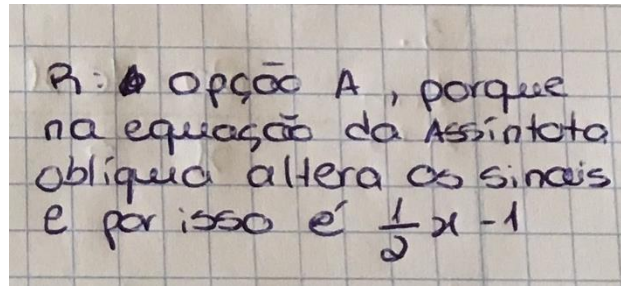 R: Opção A, porque
na equação da Assíntota
oblíqua altera os sinais
e por isso é 1/2 x - 1